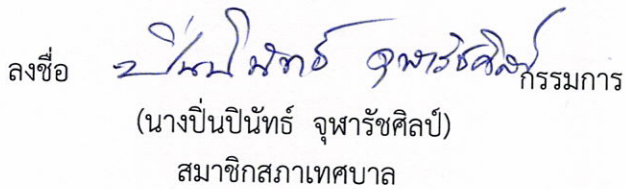 ลงชื่อ ปิ่นปินัทธ์ จุฬารัชศิลป์ กรรมการ
(นางปิ่นปินัทธ์ จุฬารัชศิลป์)
สมาชิกสภาเทศบาล